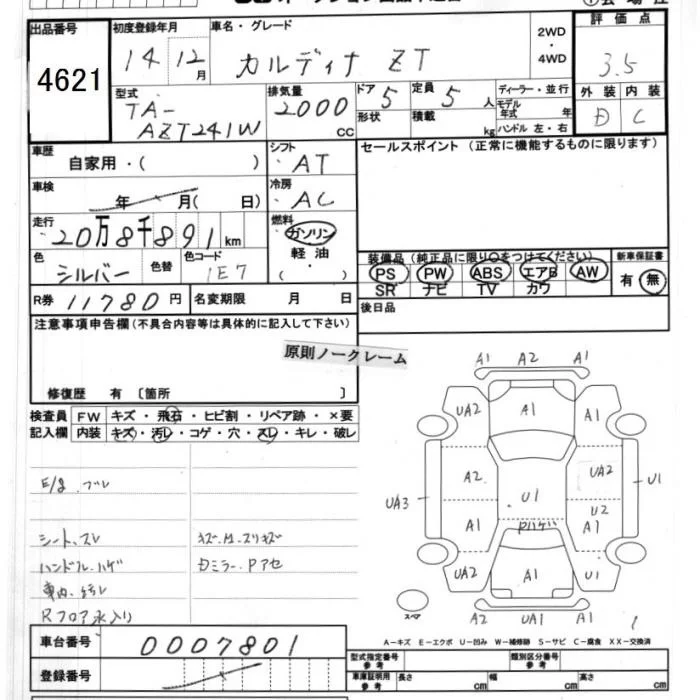 出品番号
4621
初度登録年月
14 12月
車名・グレード
カルディナ ZT
2WD
・
4WD
評価点
3.5
外装 内装
D C
型式
TA-
AZT241W
排気量
2000
CC
ドア 5
形状
定員 5 人
積載
kg
ディーラー・並行
モデル
年式 年
ハンドル 左・右
車歴
自家用・( )
シフト
・AT
セールスポイント(正常に機能するものに限ります)
車検
年 月( 日)
冷房
・AC
走行
20万8千891km
燃料
ガソリン
軽油
・( )
色
シルバー
色替
色コード
1E7
装備品(純正品に限り○をつけてください)
PS PW ABS エアB AW
SR ナビ TV カワ
新車保証書
有 無
R券 11780円
名変期限 月 日
後日品
注意事項申告欄(不具合内容等は具体的に記入して下さい)
原則ノークレーム
修復歴 有〔箇所 〕
検査員
記入欄
FW キズ・飛石・ヒビ割・リペア跡・×要
内装 キズ・汚レ・コゲ・穴・スレ・キレ・破レ
E/g ブレ
シート、スレ
キズ、M、スリキズ
ハンドル、ハゲ
Dミラー、Pアセ
車内、汚レ
Rフロア水入り
A1 A2 A1
UA2 A1 A1
A2 UA2
UA3 U1 U1
U2
A1 Rハゲ A1
UA2 A1 U1
スペア
A2 UA1 A1
A-キズ E-エクボ U-凹み W-補修跡 S-サビ C-腐食 XX-交換済
車台番号
0007801
登録番号
型式指定番号
参考
類別区分番号
参考
車庫証明用
参考
長さ cm
幅 cm
高さ cm